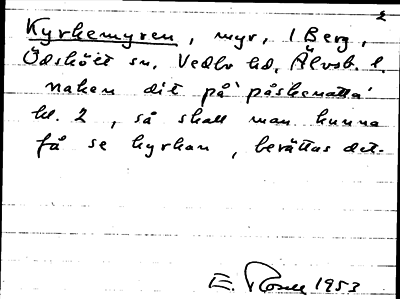 2
Kyrkemyren, myr, 1. Berg,
Ödskölt sn, Vedbo hd, Älvsb. l.
naken dit på påskenatta
kl. 2, så skall man kunna
få se kyrkan, berättas det.
E. 1953